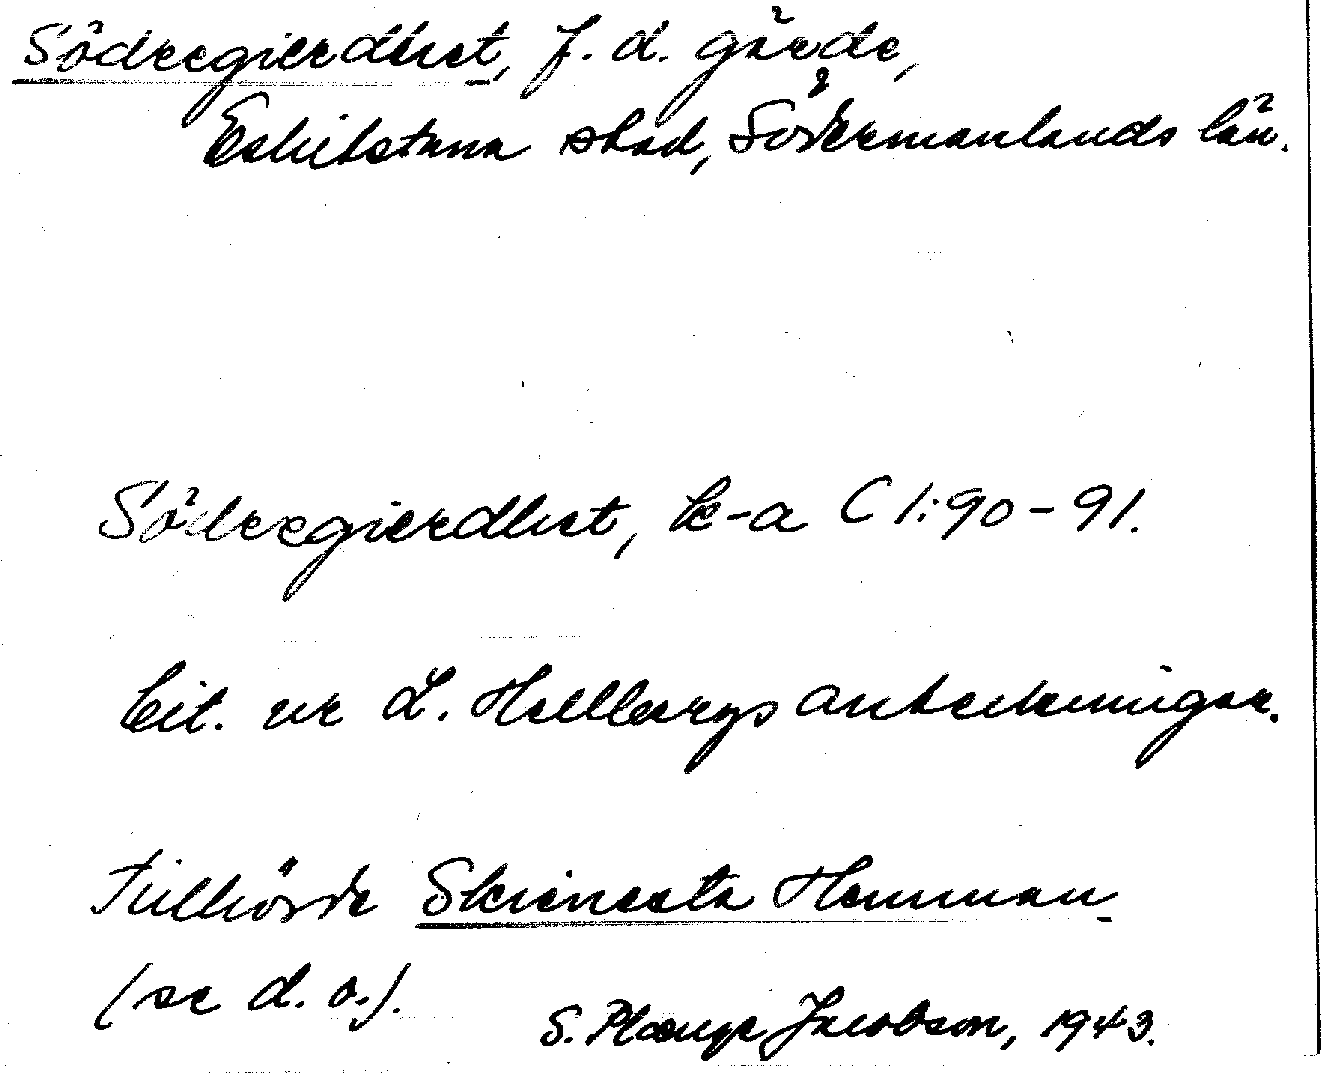 Södregierdhet, f. d. gärde,
Eskilstuna stad, Södermanlands län.
Södregierdhet, k-a C 1:90-91.
Cit. ur L. Hellbergs anteckningar.
Tillhörde Skienesta Hemman
(se d. o.).
S. Plænge Jacobson, 1943.